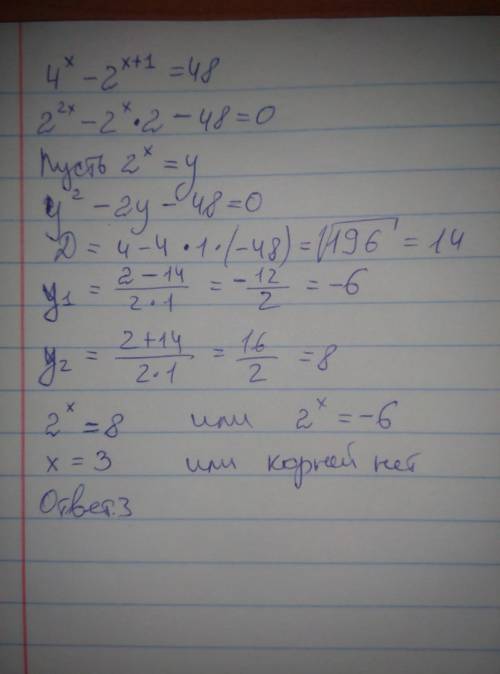 4^x - 2^{x+1} = 48
2^{2x} - 2^x · 2 - 48 = 0
Пусть 2^x = y
y^2 - 2y - 48 = 0
D = 4 - 4 · 1 · (-48) = √196 = 14
y_1 = (2 - 14)/(2 · 1) = -12/2 = -6
y_2 = (2 + 14)/(2 · 1) = 16/2 = 8
2^x = 8 или 2^x = -6
x = 3 или корней нет
Ответ: 3